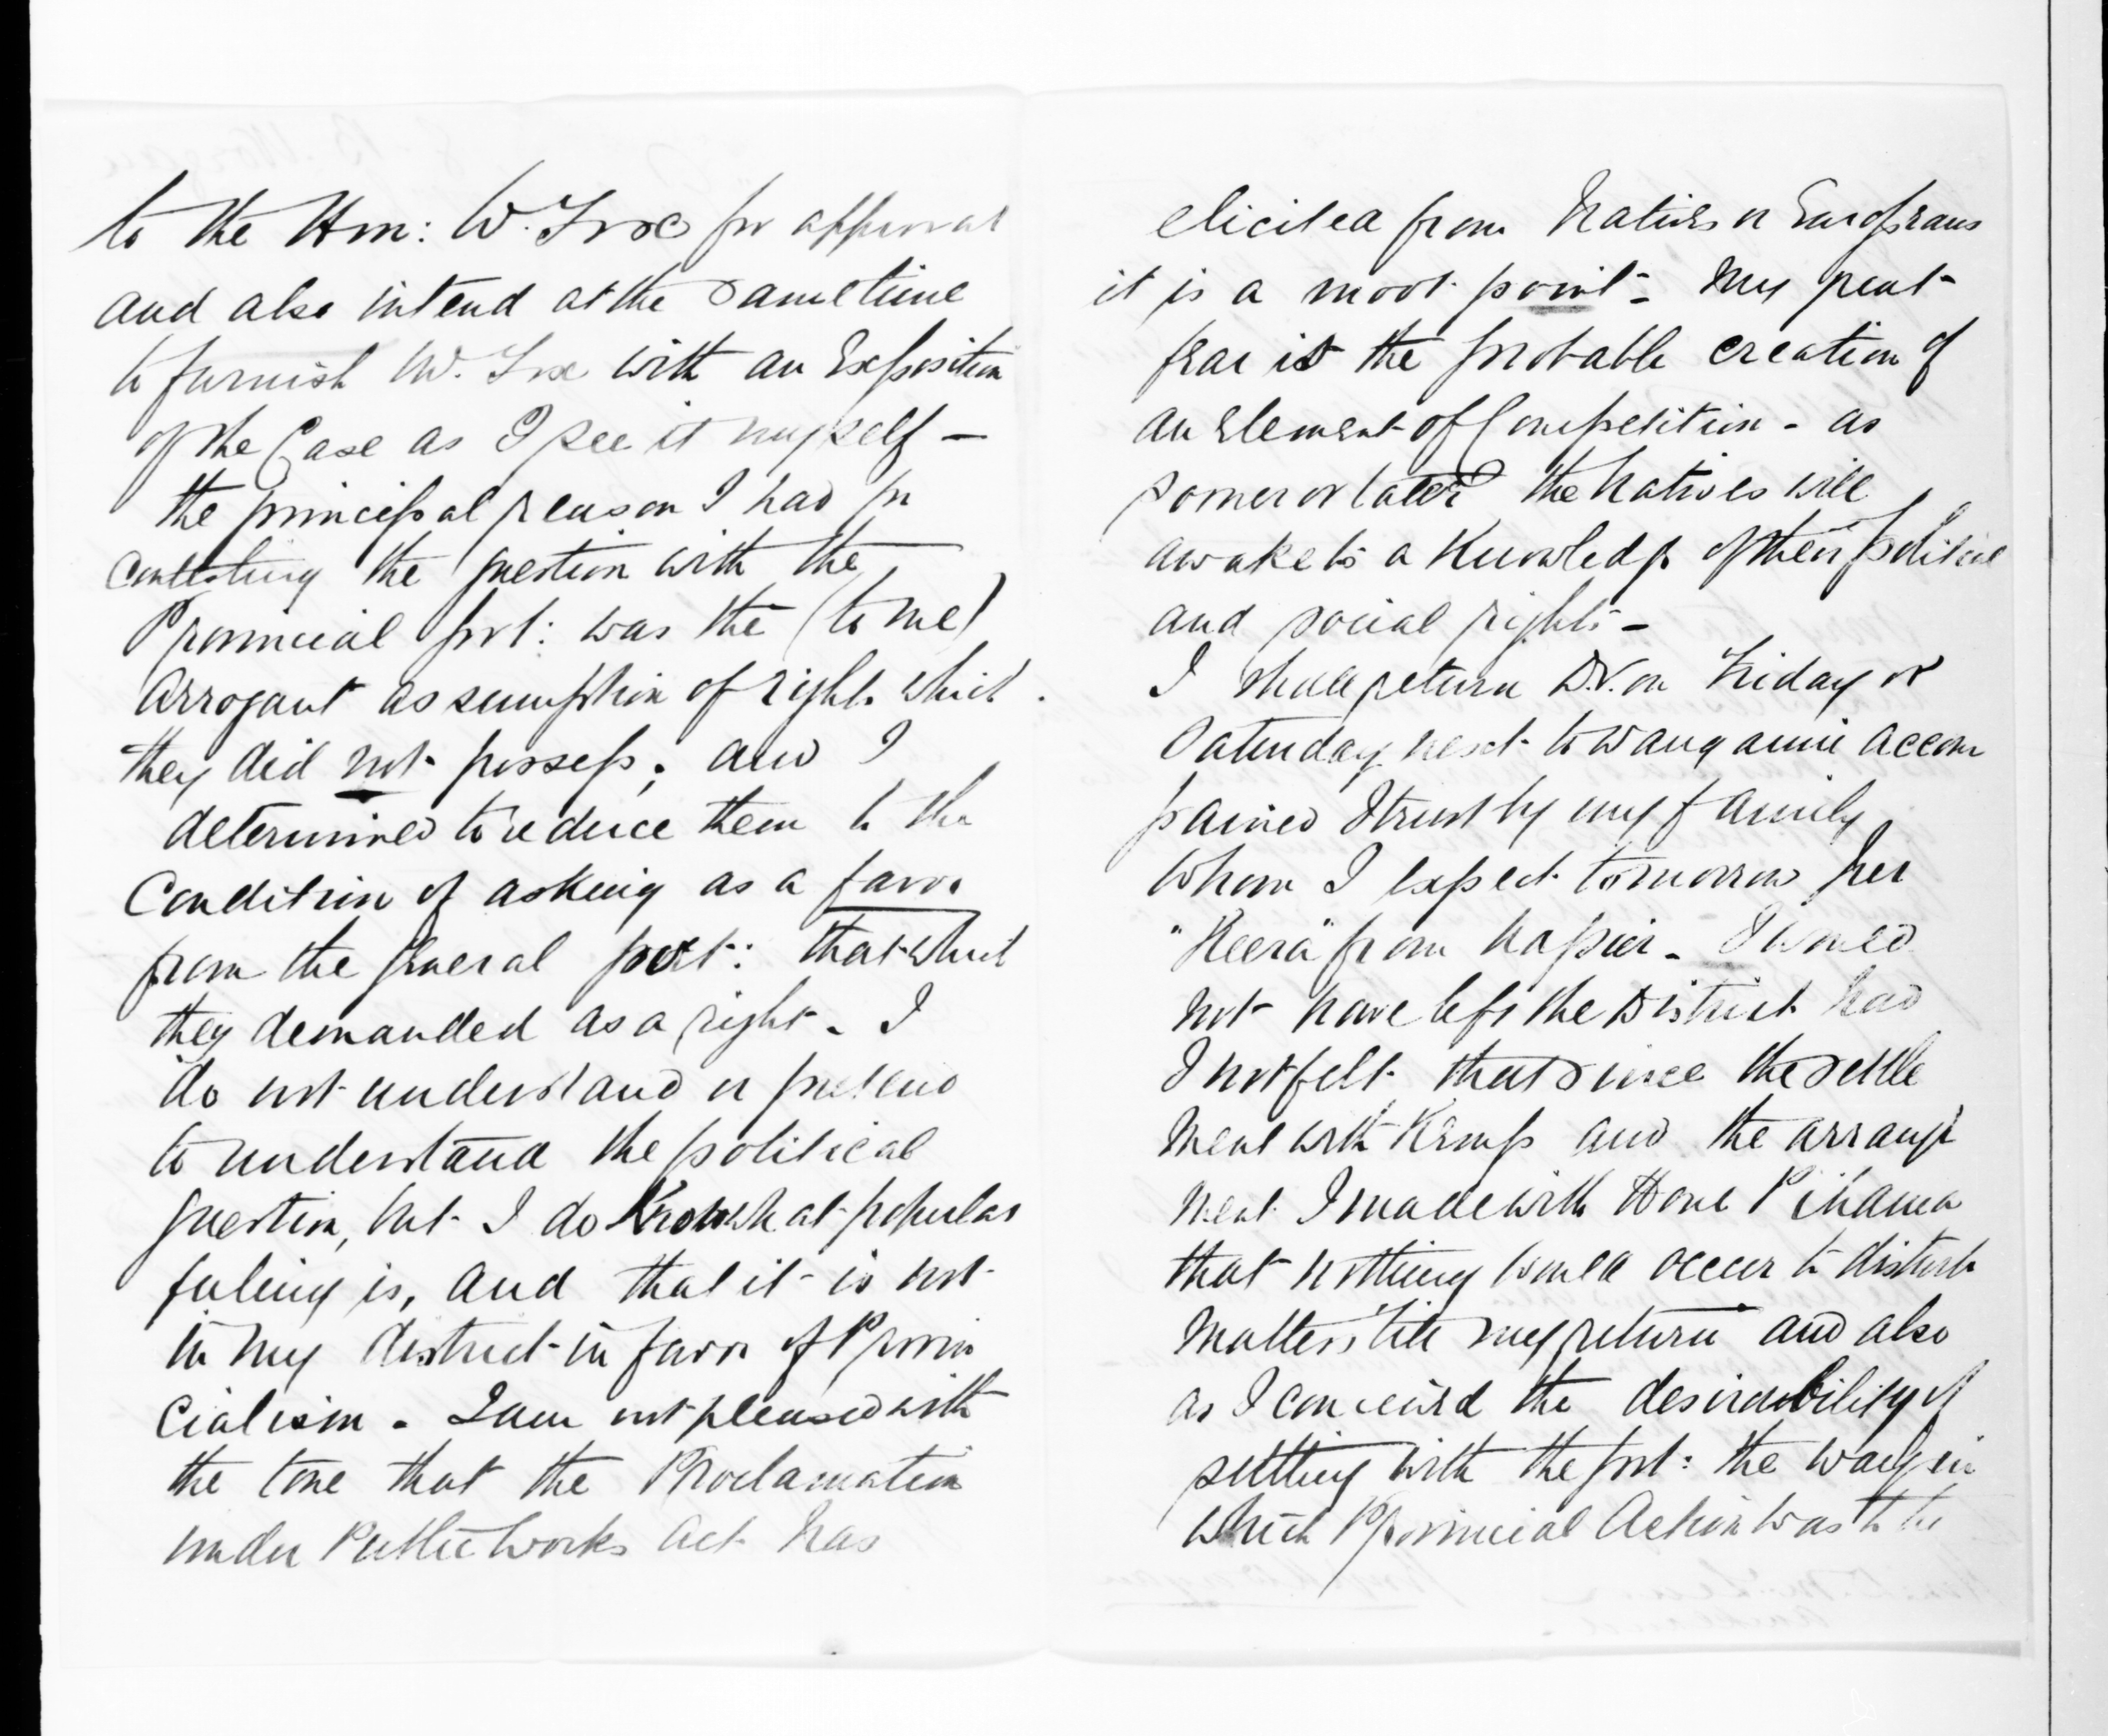 to the Hon: W. Fox for approval
and also intend at the same time
to furnish W. Fox with an Exposition
of the Case as I see it myself —
the principal reason I had for
contesting the question with the
Provincial Govt: was the (to me)
arrogant assumption of rights which
they did not possess; and I
determined to reduce them to the
Condition of asking as a favor
from the General Govt: that which
they demanded as a right - I
do not understand or pretend
to understand the political
question, but I do Know what popular
feeling is, and that it is not
in my district in favor of Provin
cialism - I am not pleased with
the tone that the Proclamation
under Public Works Act has
elicited from Natives or Europeans
it is a moot point - My great
fear is the probable creation of
an Element of Competition - as
sooner or later the Natives will
awake to a Knowledge of their political
and social rights -
I shall return D.V. on Friday or
Saturday next to Wanganui accom
panied I trust by my family
whom I expect tomorrow per
"Keera" from Napier - I would
not have left the District had
I not felt that since the settle
ment with Kemp and the arrange
ment I made with Hone Pihama
that nothing would occur to disturb
matters till my return and also
as I conceived the desirability of
settling with the Govt: the way in
which Provincial Action was to be